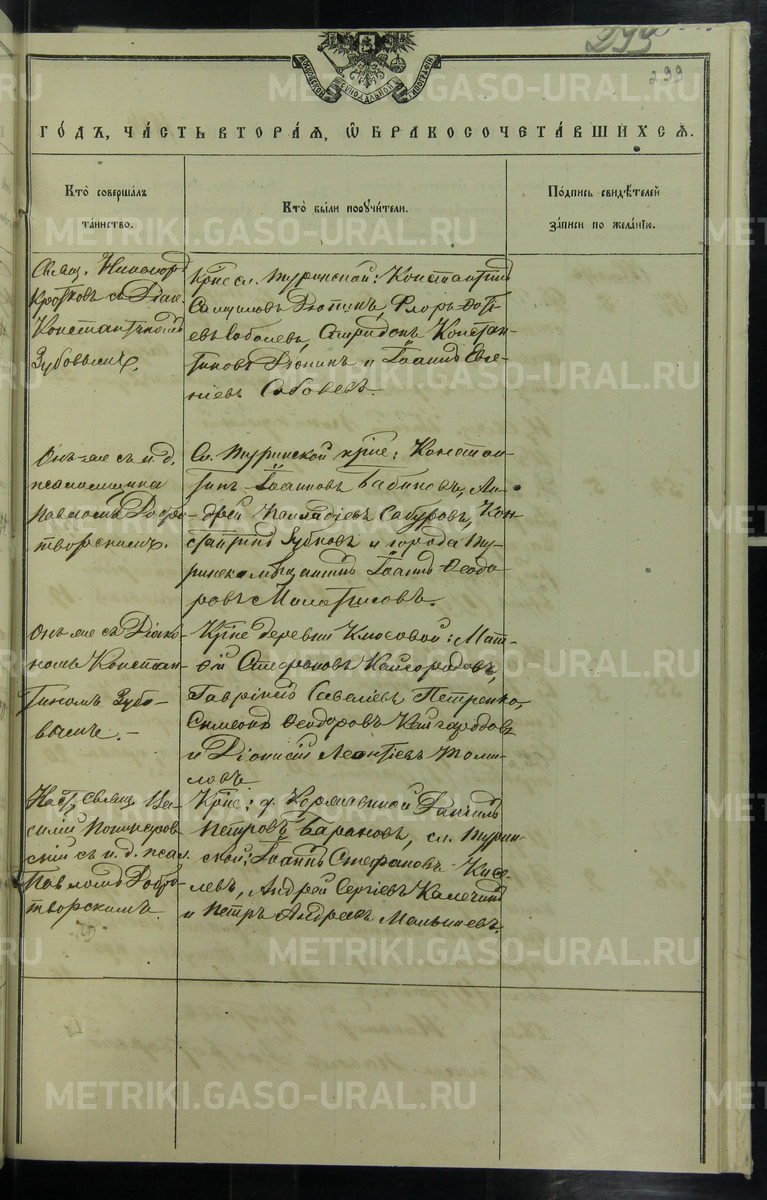 299
299
МОСКОВСКОЙ СѴНОДАЛЬНОЙ ТИПОГРАФІИ
ГО́ДЪ, ЧА́СТЬ ВТОРА́Ѧ, Ѡ҆ БРАКОСОЧЕТА́ВШИХСѦ.
Кто̀ соверша́лъ
та́инство.
Кто̀ бы́ли порꙋчи́тели.
По́дпись свидѣ́телей
за́писи по жела́нїю.
Свящ. Никонор
Кротковъ съ Діак.
Константиномъ
Зубовымъ.
Крѣстнѣ сл. Туринской: Константинъ
Самуиловъ Дюпинъ, Флоръ Фоті-
евъ Соболевъ, Спиридонъ Констан-
тиновъ Дюпинъ и Іоаннъ Евге-
ніевъ Соболевъ.
Онъ-же съ и. д.
псаломщика
Павломъ Добро-
творскимъ.
Сл. Туринской крѣне: Констан-
тинъ Іоанновъ Бабиновъ, Ан-
дрей Палладіевъ Сабуровъ, Кон-
стантинъ Зубковъ и города Ту-
ринска мѣщанинъ Іоаннъ Ѳеодо-
ровъ
Онъ же съ Діако-
номъ Констан-
тиномъ Зубо-
вымъ. -
Крѣне деревни Клосовой: Мат-
ѳій Стефановъ Кайгородовъ,
Гавріилъ Савеліевъ Петренко,
Симеонъ Ѳеодоровъ Кайгородовъ
и Діонисій Леонтіевъ Томи-
ловъ
Наст. свящ. Ва-
силій
скій съ и. д. псал.
Павломъ Добро-
творскимъ.
Крѣне: д. Даніилъ
Петровъ Барановъ, сл. Турин-
ской: Іоаннъ Стефановъ Кисе-
левъ, Андрей Сергіевъ Калечинъ
и Петръ Андреевъ Малышевъ.
METRIKI.GASO-URAL.RU